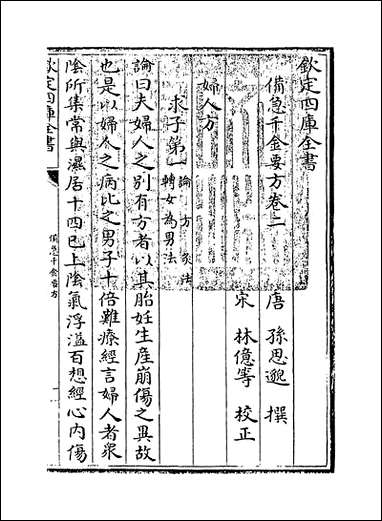 欽定四庫全書
備急千金要方卷二
唐 孫思邈 撰
宋 林億等 校正
婦人方
求子第一 論 方 灸法
轉女為男法
論曰夫婦人之别有方者以其胎妊生産崩傷之異故
也是以婦人之病比之男子十倍難療經言婦人者衆
陰所集常與濕居十四已上陰氣浮溢百想經心内傷
欽定四庫全書
備急千金要方